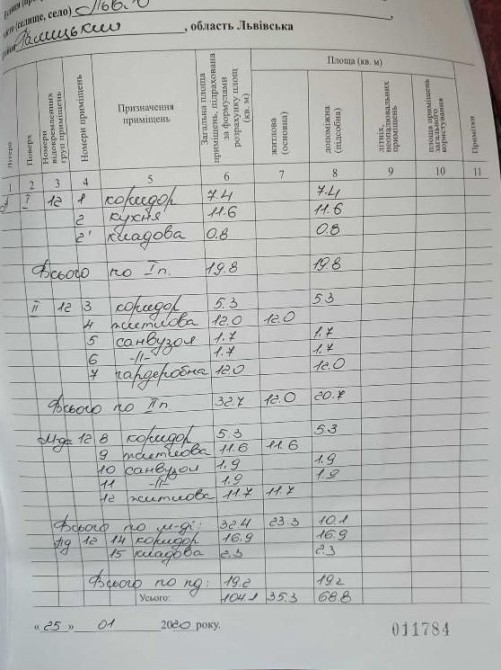 місто (селище, село) Львів,
Галицький, область Львівська
Літера
Поверх
Номери відокремлених груп приміщень
Номери приміщень
Призначення приміщень
Загальна площа приміщень, підрахована за формулами розрахунку площ (кв. м)
Площа (кв. м)
житлова (основна)
допоміжна (підсобна)
літніх, неопалювальних приміщень
площа приміщень загального користування
Примітки
1 2 3 4 5 6 7 8 9 10 11
I 12 1 коридор 7.4 7.4
2 кухня 11.6 11.6
2' кладова 0.8 0.8
Всього по I п. 19.8 19.8
II 12 3 коридор 5.3 5.3
4 житлова 12.0 12.0
5 санвузол 1.7 1.7
6 -//- 1.7 1.7
7 гардеробна 12.0 12.0
Всього по II п. 32.7 12.0 20.7
М-да 12 8 коридор 5.3 5.3
9 житлова 11.6 11.6
10 санвузол 1.9 1.9
11 -//- 1.9 1.9
12 житлова 11.7 11.7
Всього по м-ді: 32.4 23.3 10.1
пд 12 14 коридор 16.9 16.9
15 кладова 2.3 2.3
Всього по пд: 19.2 19.2
Усього: 104.1 35.3 68.8
« 25 » 01 2020 року.
011784